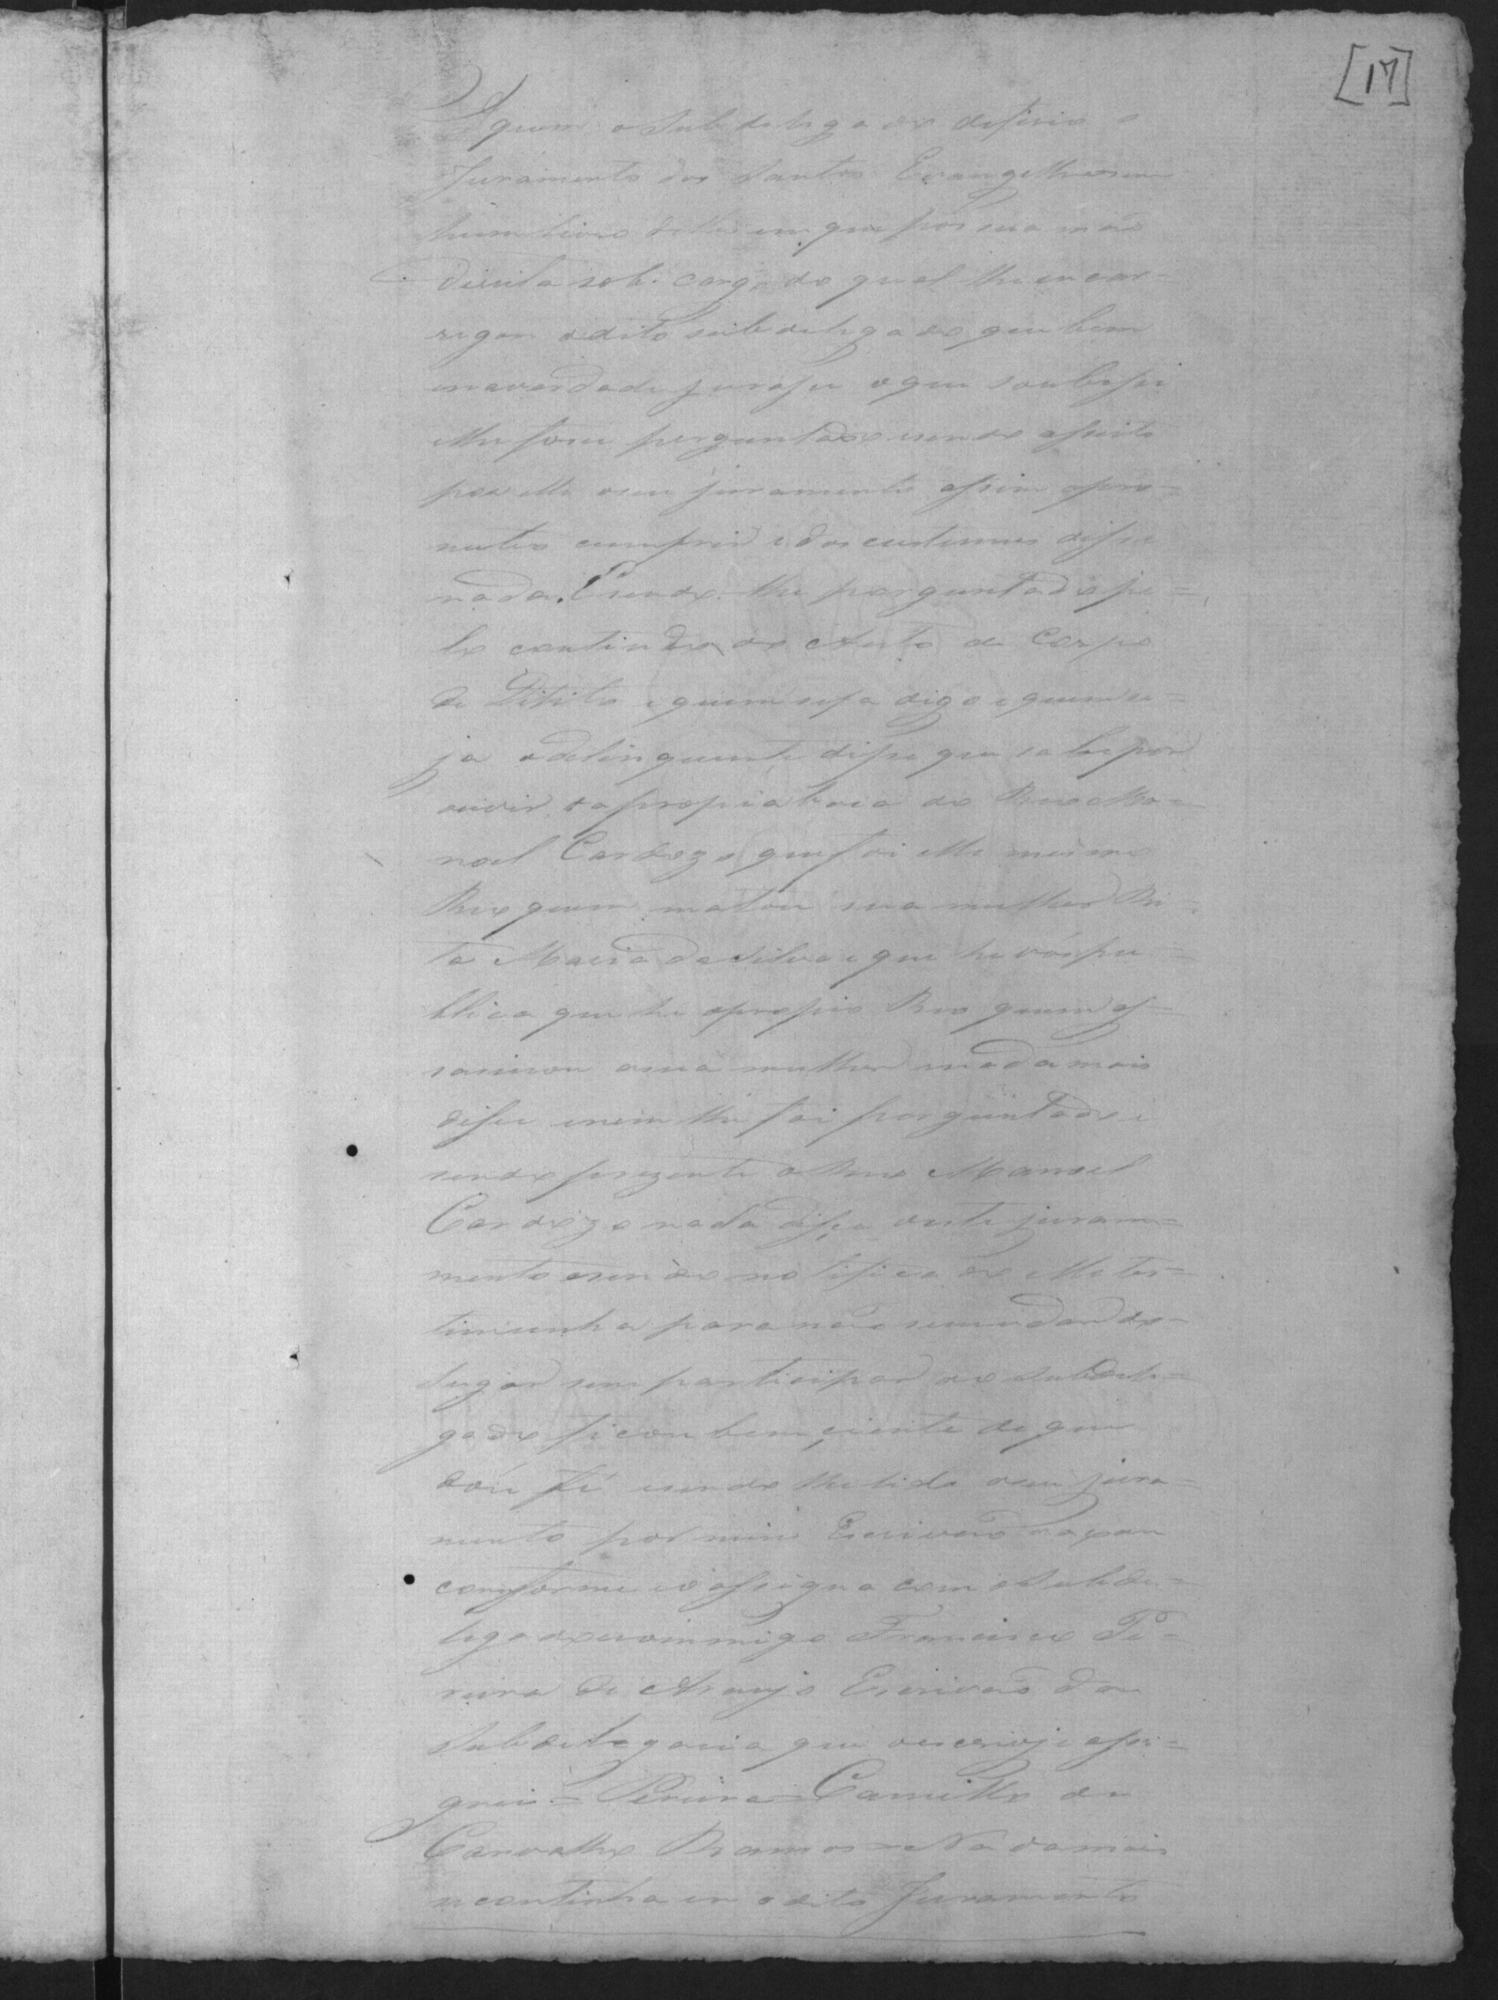 [17]
A quem o Subdelegado deferio o
Juramento dos Santos Evangelhos em
hum livro delles em que pôs sua mão
direita sob. cargo do qual lhe encar-
regou o dito subdelegado que bem
e na verdade jurasse o que soubesse
e lhe fosse perguntado e sendo asseito
por elle o seu juramento assim o pro-
meteo cumprir e dos custumes disse
nada. E sendo lhe perguntado pe-
lo contiudo do Auto de Corpo
de Dilito e quem seja digo e quem se-
ja o delinquente disse que sabe por
ouvir da propia boca do Reo Ma-
noel Cardozo que foi elle mesmo
Reo quem matou sua mulher Ri-
ta Maria da Silva e que he vós pu-
blica que he o propio Reo quem as-
sasinou a sua mulher e nada mais
disse e nem lhe foi perguntado e
sendo prezente o Reo Manoel
Cardozo nada disse a este jura-
mento e sendo notificado elle tes-
timunha para não se mudar do
lugar sem participar ao Subdele-
gado ficou bem ciente de que
dou fé e sendo lhe lido o seu jura-
mento por mim Escrivão o axou
conforme e o assigna com o Subde-
legado e commigo Francisco Pe-
reira de Araujo Escrivão da
Subdelegacia que o escrevi e assi-
gnei = Pereira = Camillo de
Carvalho Ramos = Nada mais
se continha em o dito Juramento